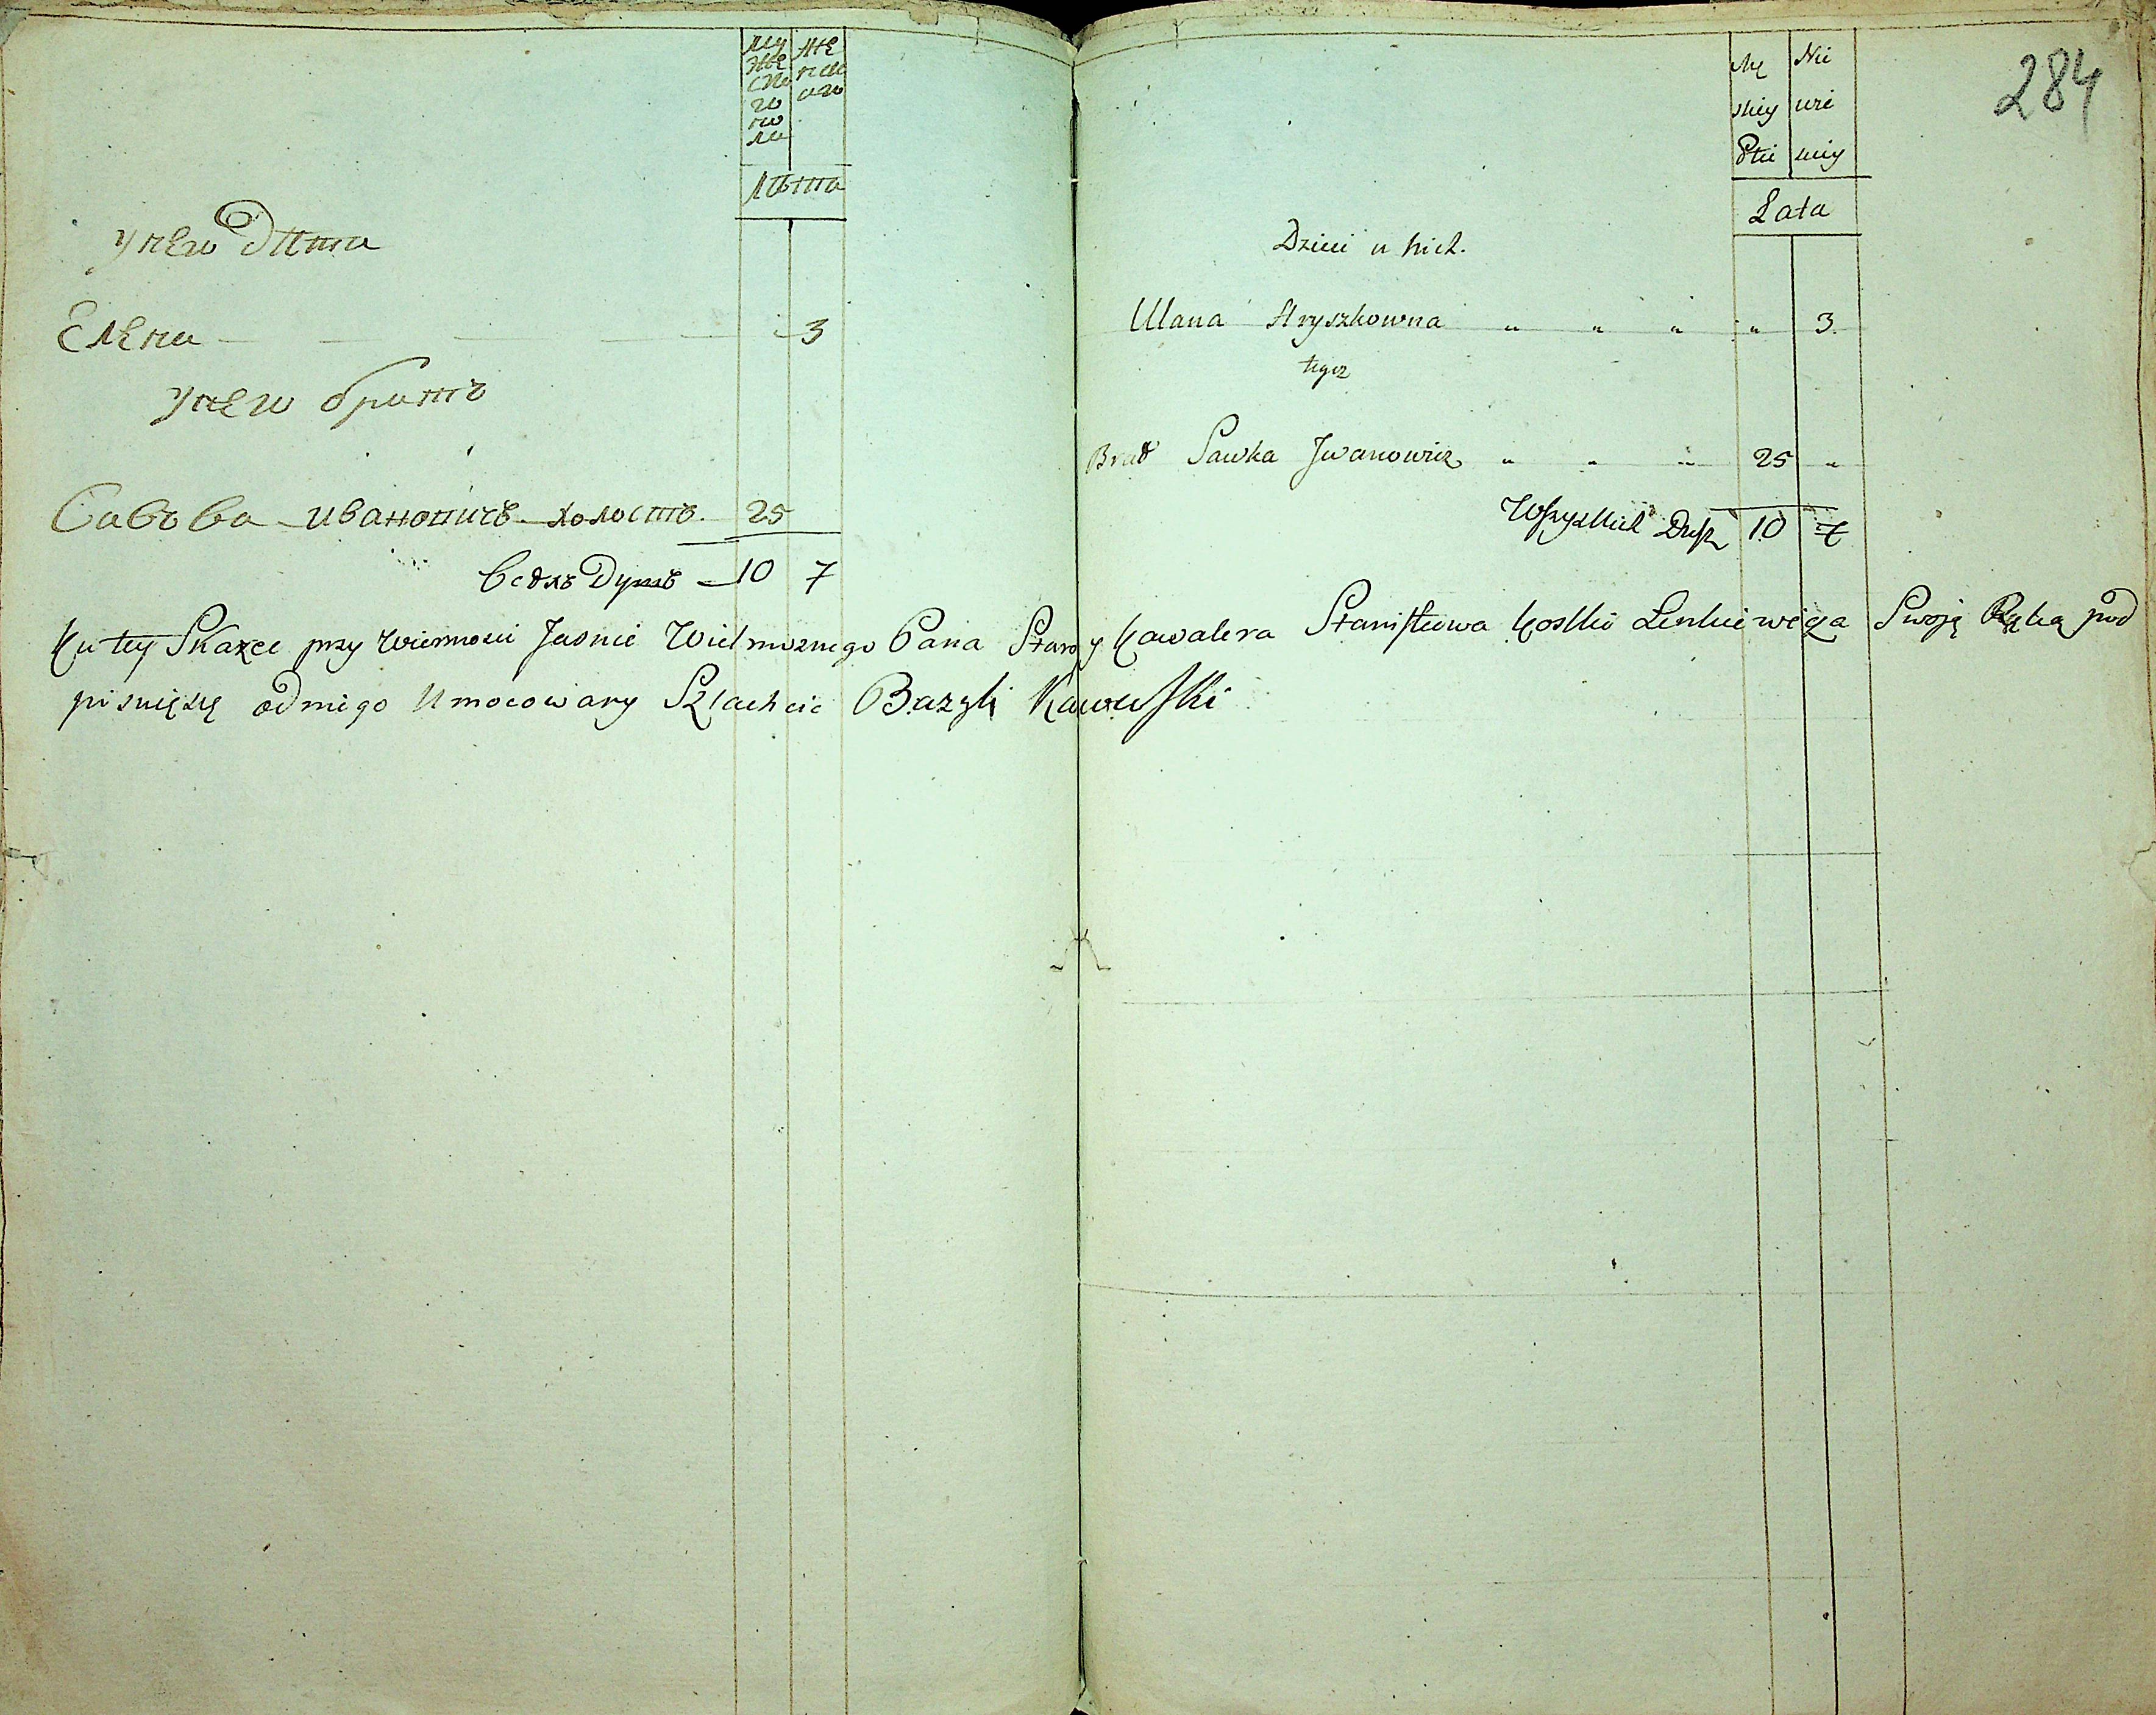 муже ско го по ла
же нска го
лѣта
у него дѣти
Елена 3
у него братъ
Савъва Ивановичъ холостъ 25
всѣхъ Душъ 10 7
284
Mę skiy Płci
Nie wie sciy
Lata
Dzieci u nich.
Ulana Hryszkowna " " " " 3.
tegoż
Brat Sawka Jwanowicz " " " 25 "
Wszystkich Dusz 10 7
Ku tey Skazce przy wiernosci Jasnie Wielmoznego Pana Starosty Kawalera Stanisława Kostki Lenkiewicza Swoją Ręką pod
pisuię się od niego Umocowany Szlachcic Bazyli